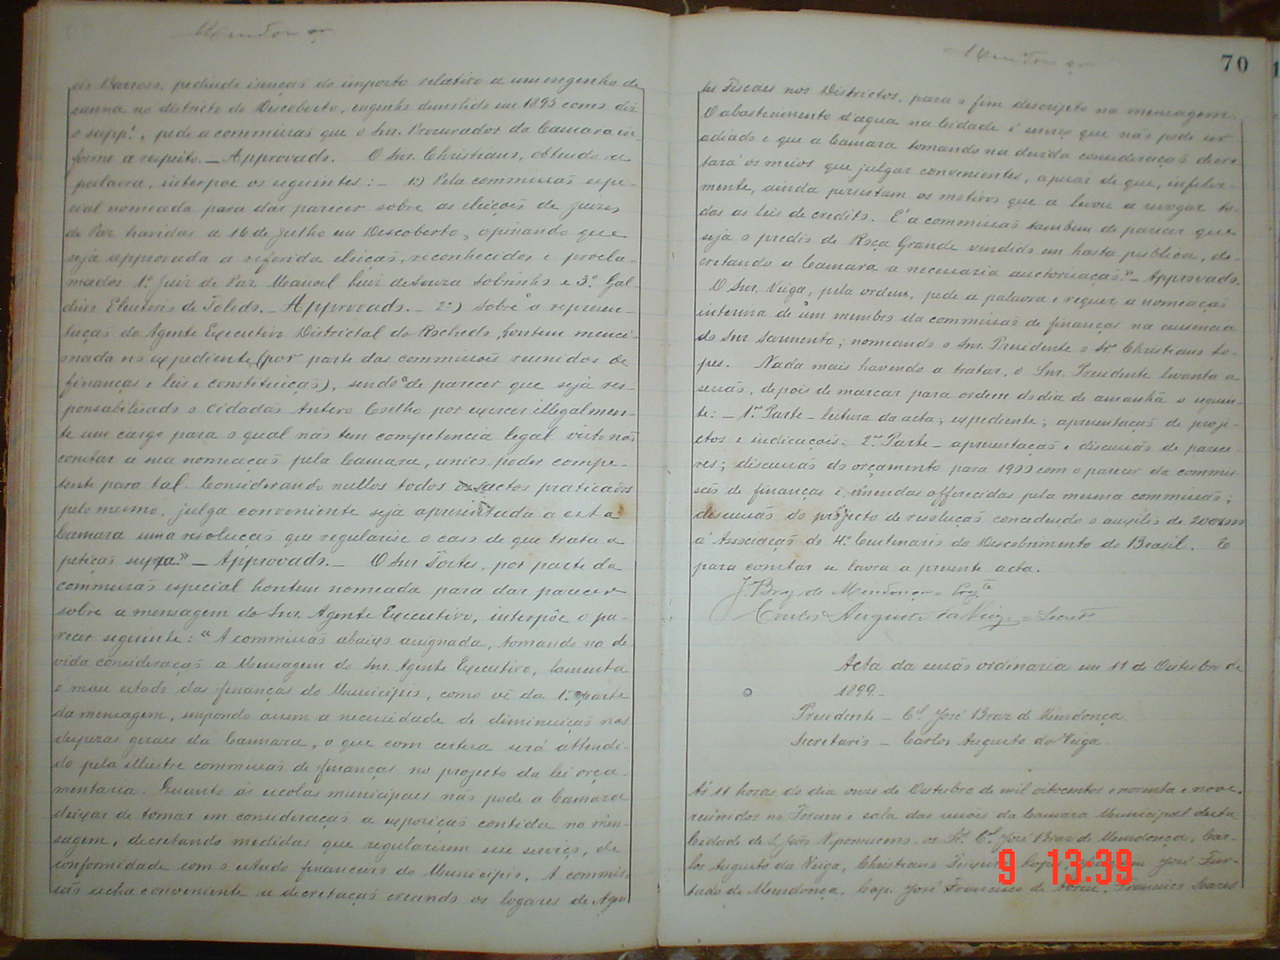 Mendonça
de Barros, pedindo isenção do imposto relativo a um engenho de
canna no districto do Descoberto, engenho demolido em 1895 como diz
o supp.e, pede a commissão que o Snr. Procurador da Camara in-
forme a respeito. — Approvado. O Snr. Christiano, obtendo a
palavra, interpõe os seguintes: — 1º) Pela commissão espe-
cial nomeada para dar parecer sobre as eleições de Juizes
de Paz havidas a 16 de Julho em Descoberto, opinando que
seja approvada a referida eleição, reconhecidos e procla-
mados 1º Juiz de Paz Manoel Luiz de Souza Sobrinho e 3º Gal-
dino Eleuterio de Toledo. — Approvado. — 2º) Sobre a represen-
tação do Agente Executivo Districtal do Rochedo, hontem menci-
onada no expediente (por parte das commissões reunidas de
finanças e leis e constituição), sendo de parecer que seja res-
ponsabilisado o cidadão Antero Coelho por exercer illegalmen-
te um cargo para o qual não tem competencia legal visto não
constar a sua nomeação pela Camara, unico poder compe-
tente para tal. Considerando nullos todos os actos praticados
pelo mesmo, julga conveniente seja apresentada a esta
Camara uma resolução que regularise o caso de que trata a
petição supra." — Approvado. — O Snr Fortes, por parte da
commissão especial hontem nomeada para dar parecer
sobre a mensagem do Snr. Agente Executivo, interpõe o pa-
recer seguinte: "A commissão abaixo assignada, tomando na de-
vida consideração a Mensagem do Snr. Agente Executivo, lamenta
o mau estado das finanças do Municipio, como vê da 1ª parte
da mensagem, impondo assim a necessidade de diminuição nas
despezas geraes da Camara, o que com certeza será attendi-
do pela illustre commissão de finanças no projecto da lei orça-
mentaria. Quanto ás escolas municipaes não pode a Camara
deixar de tomar em consideração a exposição contida na men-
sagem, decretando medidas que regularisem esse serviço, de
conformidade com o estado financeiro do Municipio. A commis-
são acha conveniente a decretação creando os logares de Agen-
Mendonça
70
tes Fiscaes nos Districtos, para o fim descripto na mensagem.
O abastecimento d'agua na Cidade é serviço que não pode ser
adiado e que a Camara tomando na devida consideração decre-
tará os meios que julgar convenientes, apezar de que, infeliz-
mente, ainda persistam os motivos que a levou a revogar to-
das as leis de credito. É a commissão tambem de parecer que
seja o predio de Roça Grande vendido em hasta publica, de-
cretando a Camara a necessaria auctorisação." — Approvado.
O Snr. Veiga, pela ordem, pede a palavra e requer a nomeação
interina de um membro da commissão de finanças na ausencia
do Snr. Sarmento; nomeando o Snr. Presidente o Sr. Christiano Lo-
pes. Nada mais havendo a tratar, o Snr. Presidente levanta a
sessão, depois de marcar para ordem do dia de amanhã o seguin-
te: — 1ª Parte — leitura da acta; expediente; apresentação de proje-
ctos e indicações. 2ª Parte — apresentação e discussão de parece-
res; discussão do orçamento para 1900 com o parecer da commis-
são de finanças e emendas offerecidas pela mesma commissão;
discussão do projecto de resolução concedendo o auxilio de 200$000
á Associação do 4º Centenario do Descobrimento do Brasil. E
para constar se lavra a presente acta.
J. Braz de Mendonça = Presid.te
Carlos Augusto da Veiga = Secret.º
Acta da sessão ordinaria em 11 de Outubro de
1899.
Presidente — C.el José Braz de Mendonça
Secretario — Carlos Augusto da Veiga.
Ás 11 horas do dia onze de Outubro de mil oitocentos e noventa e nove,
reunidos no Forum e sala das sessões da Camara Municipal desta
Cidade de S. João Nepomuceno, os Srs. C.el José Braz de Mendonça, Car-
los Augusto da Veiga, Christiano Lopes, José Fur-
tado de Mendonça, Cap. José Francisco de, Francisco Soares
9 13:39